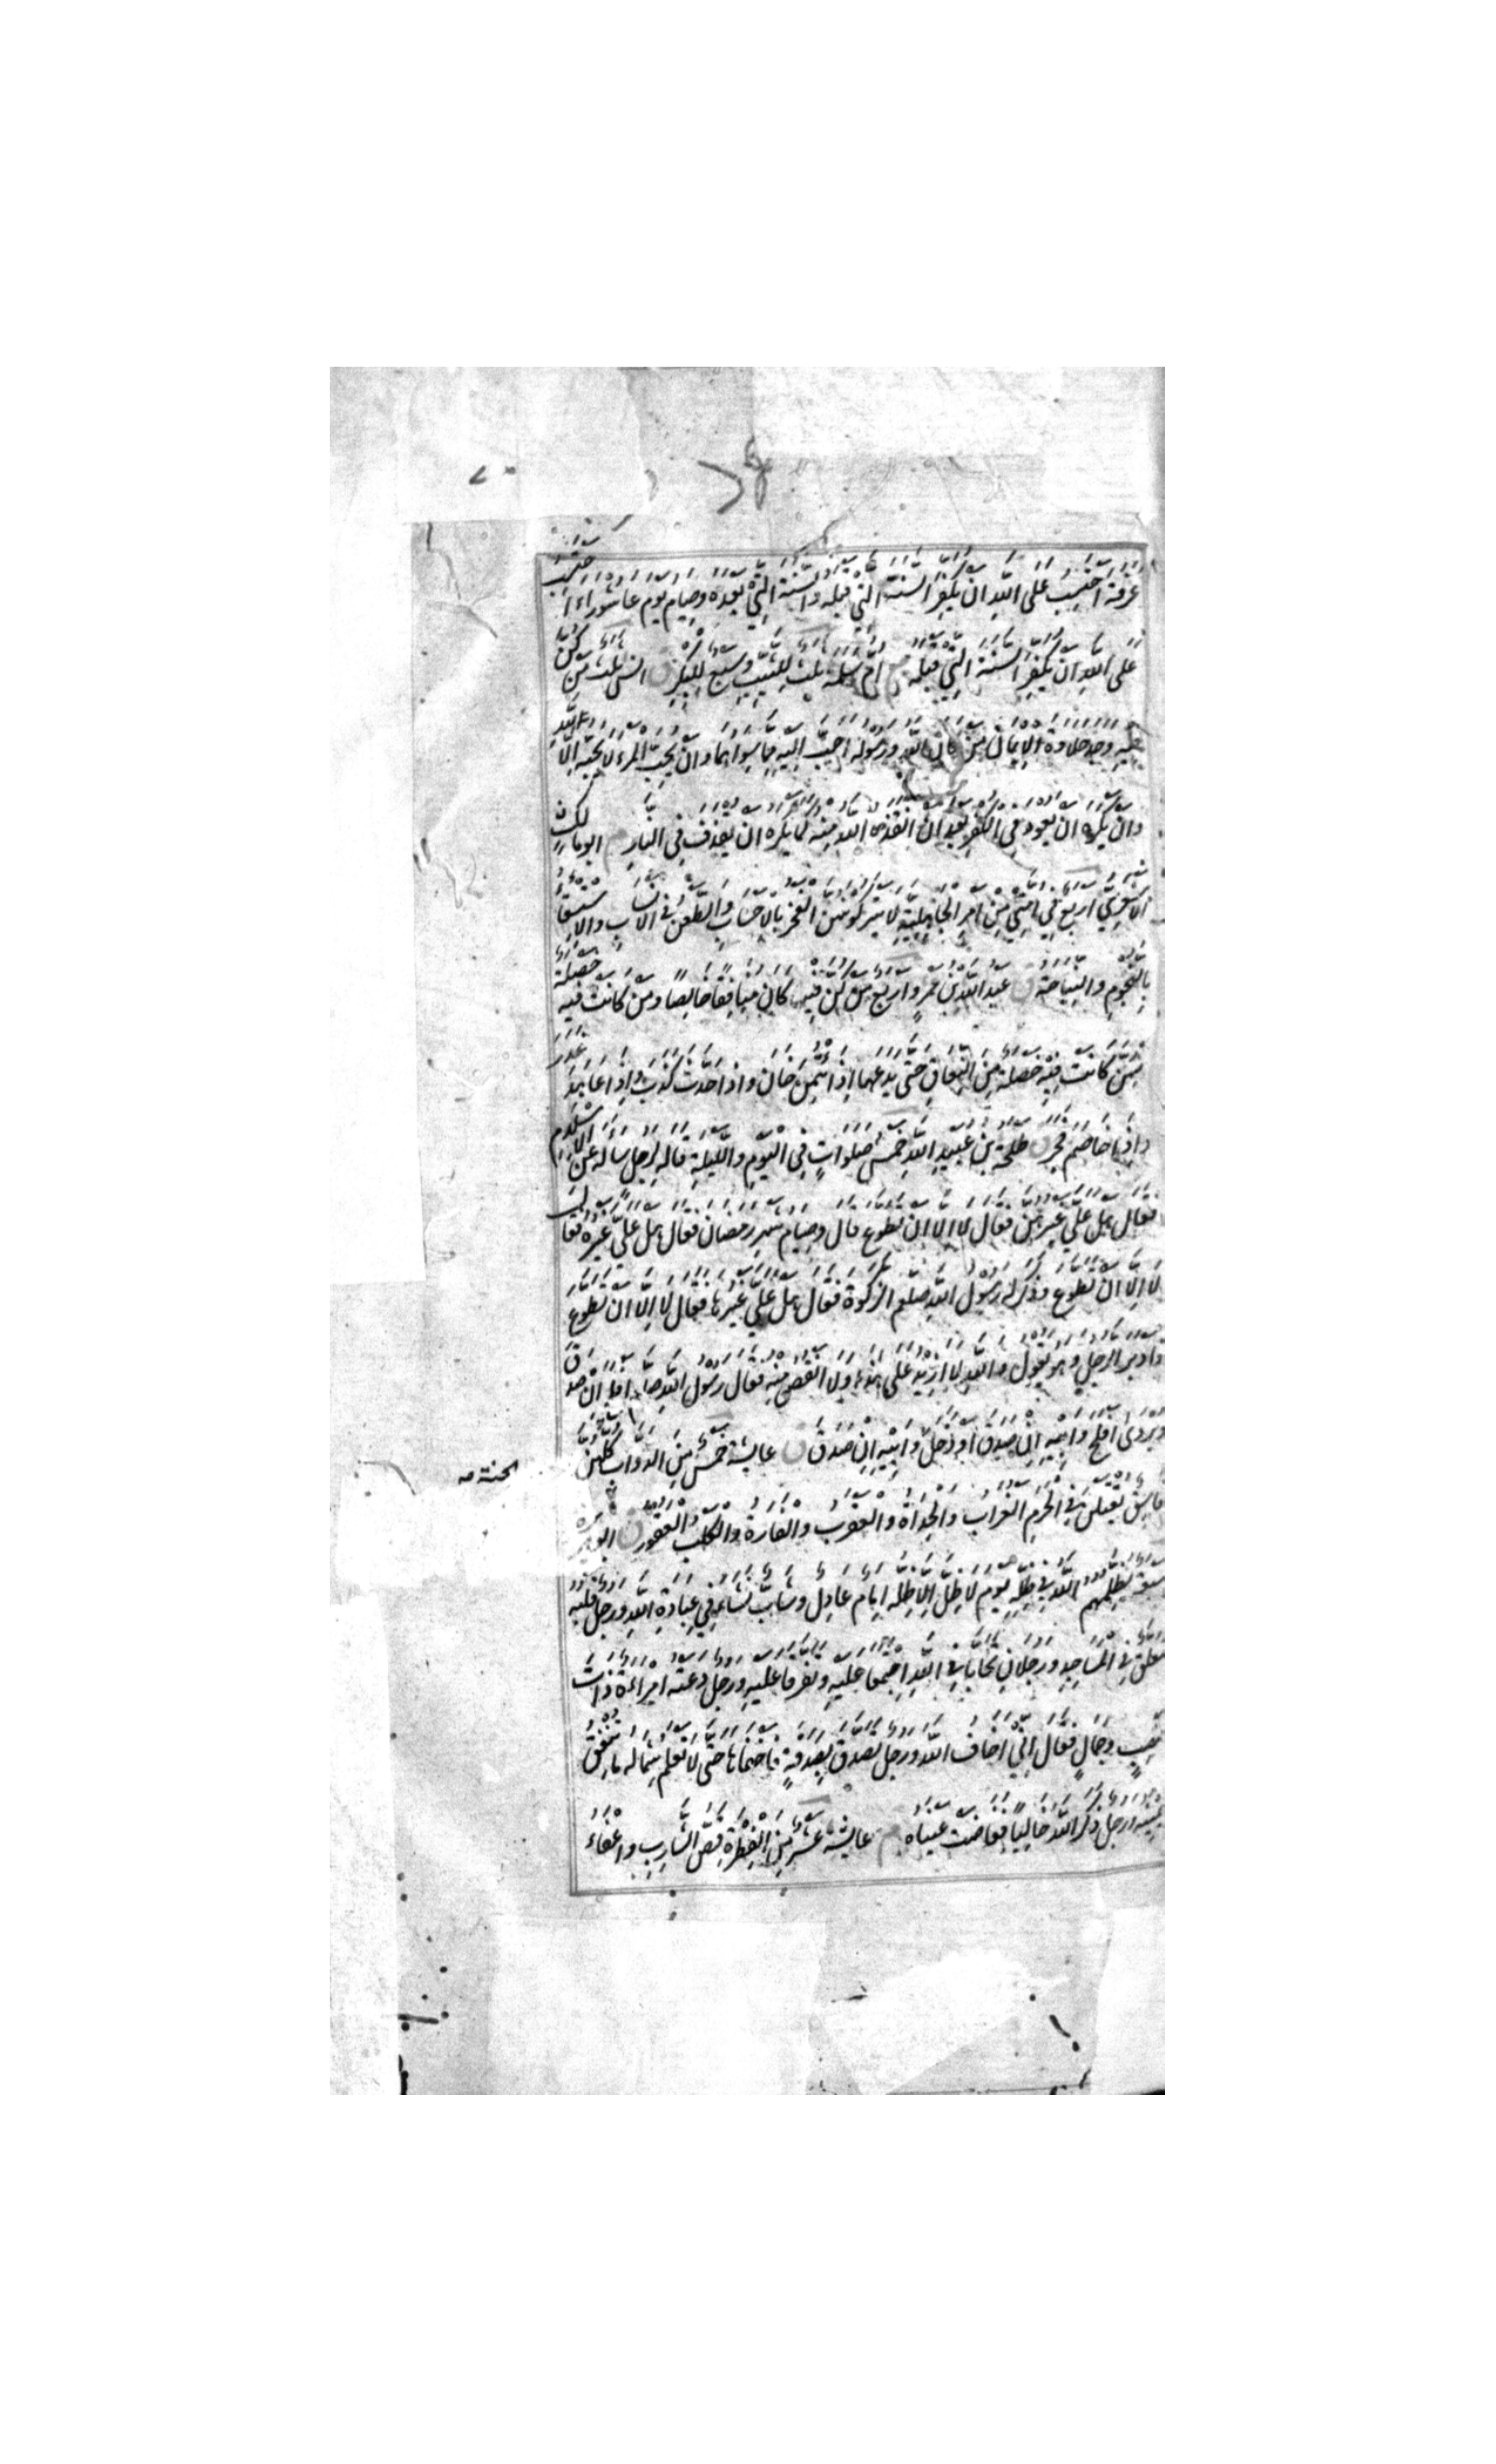 عَرَفَةَ اَحْتَسِبُ عَلَى اللّٰهِ اَنْ يُكَفِّرَ السَّنَةَ الَّتِي قَبْلَهُ وَالسَّنَةَ الَّتِي بَعْدَهُ وَصِيَامُ يَوْمِ عَاشُورَاءَ اَحْتَسِبُ
عَلَى اللّٰهِ اَنْ يُكَفِّرَ السَّنَةَ الَّتِي قَبْلَهُ م اُمُّ سَلَمَةَ ثَلٰثٌ لِلثَّيِّبِ وَسَبْعٌ لِلْبِكْرِ ق انس ثَلٰثٌ مَنْ كُنَّ
فِيهِ وَجَدَ حَلَاوَةَ الْاِيمَانِ مَنْ كَانَ اللّٰهُ وَرَسُولُهُ اَحَبَّ اِلَيْهِ مِمَّا سِوَاهُمَا وَاَنْ يُحِبَّ الْمَرْءَ لَا يُحِبُّهُ اِلَّا لِلّٰهِ
وَاَنْ يَكْرَهَ اَنْ يَعُودَ فِي الْكُفْرِ بَعْدَ اَنْ اَنْقَذَهُ اللّٰهُ مِنْهُ كَمَا يَكْرَهُ اَنْ يُقْذَفَ فِي النَّارِ م ابومالك
الْاَشْعَرِيُّ اَرْبَعٌ فِي اُمَّتِي مِنْ اَمْرِ الْجَاهِلِيَّةِ لَا يَتْرُكُونَهُنَّ الْفَخْرُ بِالْاَحْسَابِ وَالطَّعْنُ فِي الْاَنْسَابِ وَالْاِسْتِسْقَاءُ
بِالنُّجُومِ وَالنِّيَاحَةُ ق عبد اللّٰه بن عمرو اَرْبَعٌ مَنْ كُنَّ فِيهِ كَانَ مُنَافِقًا خَالِصًا وَمَنْ كَانَتْ فِيهِ خَصْلَةٌ
مِنْهُنَّ كَانَتْ فِيهِ خَصْلَةٌ مِنَ النِّفَاقِ حَتّٰى يَدَعَهَا اِذَا اؤْتُمِنَ خَانَ وَاِذَا حَدَّثَ كَذَبَ وَاِذَا عَاهَدَ غَدَرَ
وَاِذَا خَاصَمَ فَجَرَ ق طلحة بن عبيد اللّٰه خَمْسُ صَلَوَاتٍ فِي الْيَوْمِ وَاللَّيْلَةِ قَالَهُ لِرَجُلٍ سَاَلَهُ عَنِ الْاِسْلَامِ
فَقَالَ هَلْ عَلَيَّ غَيْرُهُنَّ فَقَالَ لَا اِلَّا اَنْ تَطَوَّعَ قَالَ وَصِيَامُ شَهْرِ رَمَضَانَ فَقَالَ هَلْ عَلَيَّ غَيْرُهُ فَقَالَ
لَا اِلَّا اَنْ تَطَوَّعَ وَذَكَرَ لَهُ رَسُولُ اللّٰهِ صلعم الزَّكٰوةَ فَقَالَ هَلْ عَلَيَّ غَيْرُهَا فَقَالَ لَا اِلَّا اَنْ تَطَوَّعَ
فَاَدْبَرَ الرَّجُلُ وَهُوَ يَقُولُ وَاللّٰهِ لَا اَزِيدُ عَلٰى هٰذَا وَلَا اَنْقُصُ مِنْهُ فَقَالَ رَسُولُ اللّٰهِ اَفْلَحَ اِنْ صَدَقَ
وَيُرْوٰى اَفْلَحَ وَاَبِيهِ اِنْ صَدَقَ اَوْ دَخَلَ وَاَبِيهِ اِنْ صَدَقَ ق عَايِشَة خَمْسٌ مِنَ الدَّوَابِّ كُلُّهُنَّ
الجنة صه
فَاسِقٌ يُقْتَلْنَ فِي الْحَرَمِ الْغُرَابُ وَالْحِدَاَةُ وَالْعَقْرَبُ وَالْفَارَةُ وَالْكَلْبُ الْعَقُورُ ق ابوهريرة
سَبْعَةٌ يُظِلُّهُمُ اللّٰهُ فِي ظِلِّهِ يَوْمَ لَا ظِلَّ اِلَّا ظِلُّهُ اِمَامٌ عَادِلٌ وَشَابٌّ نَشَاَ فِي عِبَادَةِ اللّٰهِ وَرَجُلٌ قَلْبُهُ
مُعَلَّقٌ فِي الْمَسَاجِدِ وَرَجُلَانِ تَحَابَّا فِي اللّٰهِ اجْتَمَعَا عَلَيْهِ وَتَفَرَّقَا عَلَيْهِ وَرَجُلٌ دَعَتْهُ امْرَاَةٌ ذَاتُ
مَنْصِبٍ وَجَمَالٍ فَقَالَ اِنِّي اَخَافُ اللّٰهَ وَرَجُلٌ تَصَدَّقَ بِصَدَقَةٍ فَاَخْفَاهَا حَتّٰى لَا تَعْلَمَ شِمَالُهُ مَا تُنْفِقُ
يَمِينُهُ وَرَجُلٌ ذَكَرَ اللّٰهَ خَالِيًا فَفَاضَتْ عَيْنَاهُ م عَايِشَة عَشْرٌ مِنَ الْفِطْرَةِ قَصُّ الشَّارِبِ وَاِعْفَاءُ